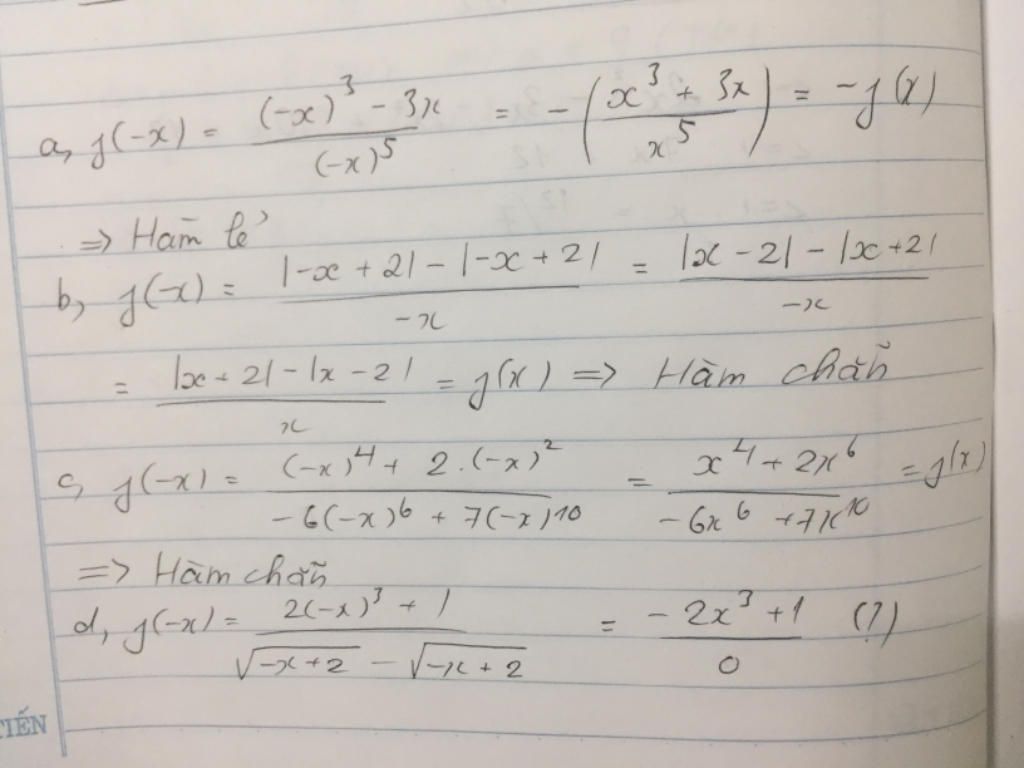 a, f(-x) = \frac{(-x)^3 - 3x}{(-x)^5} = -\left(\frac{x^3 + 3x}{x^5}\right) = -f(x)
=> Hàm lẻ
b, f(-x) = \frac{|-x + 2| - |-x + 2|}{-x} = \frac{|x - 2| - |x + 2|}{-x}
= \frac{|x + 2| - |x - 2|}{x} = f(x) => Hàm chẵn
c, f(-x) = \frac{(-x)^4 + 2.(-x)^2}{-6(-x)^6 + 7(-x)^{10}} = \frac{x^4 + 2x^6}{-6x^6 + 7x^{10}} = f(x)
=> Hàm chẵn
d, f(-x) = \frac{2(-x)^3 + 1}{\sqrt{-x + 2} - \sqrt{-x + 2}} = \frac{-2x^3 + 1}{0} (?)
TIẾN